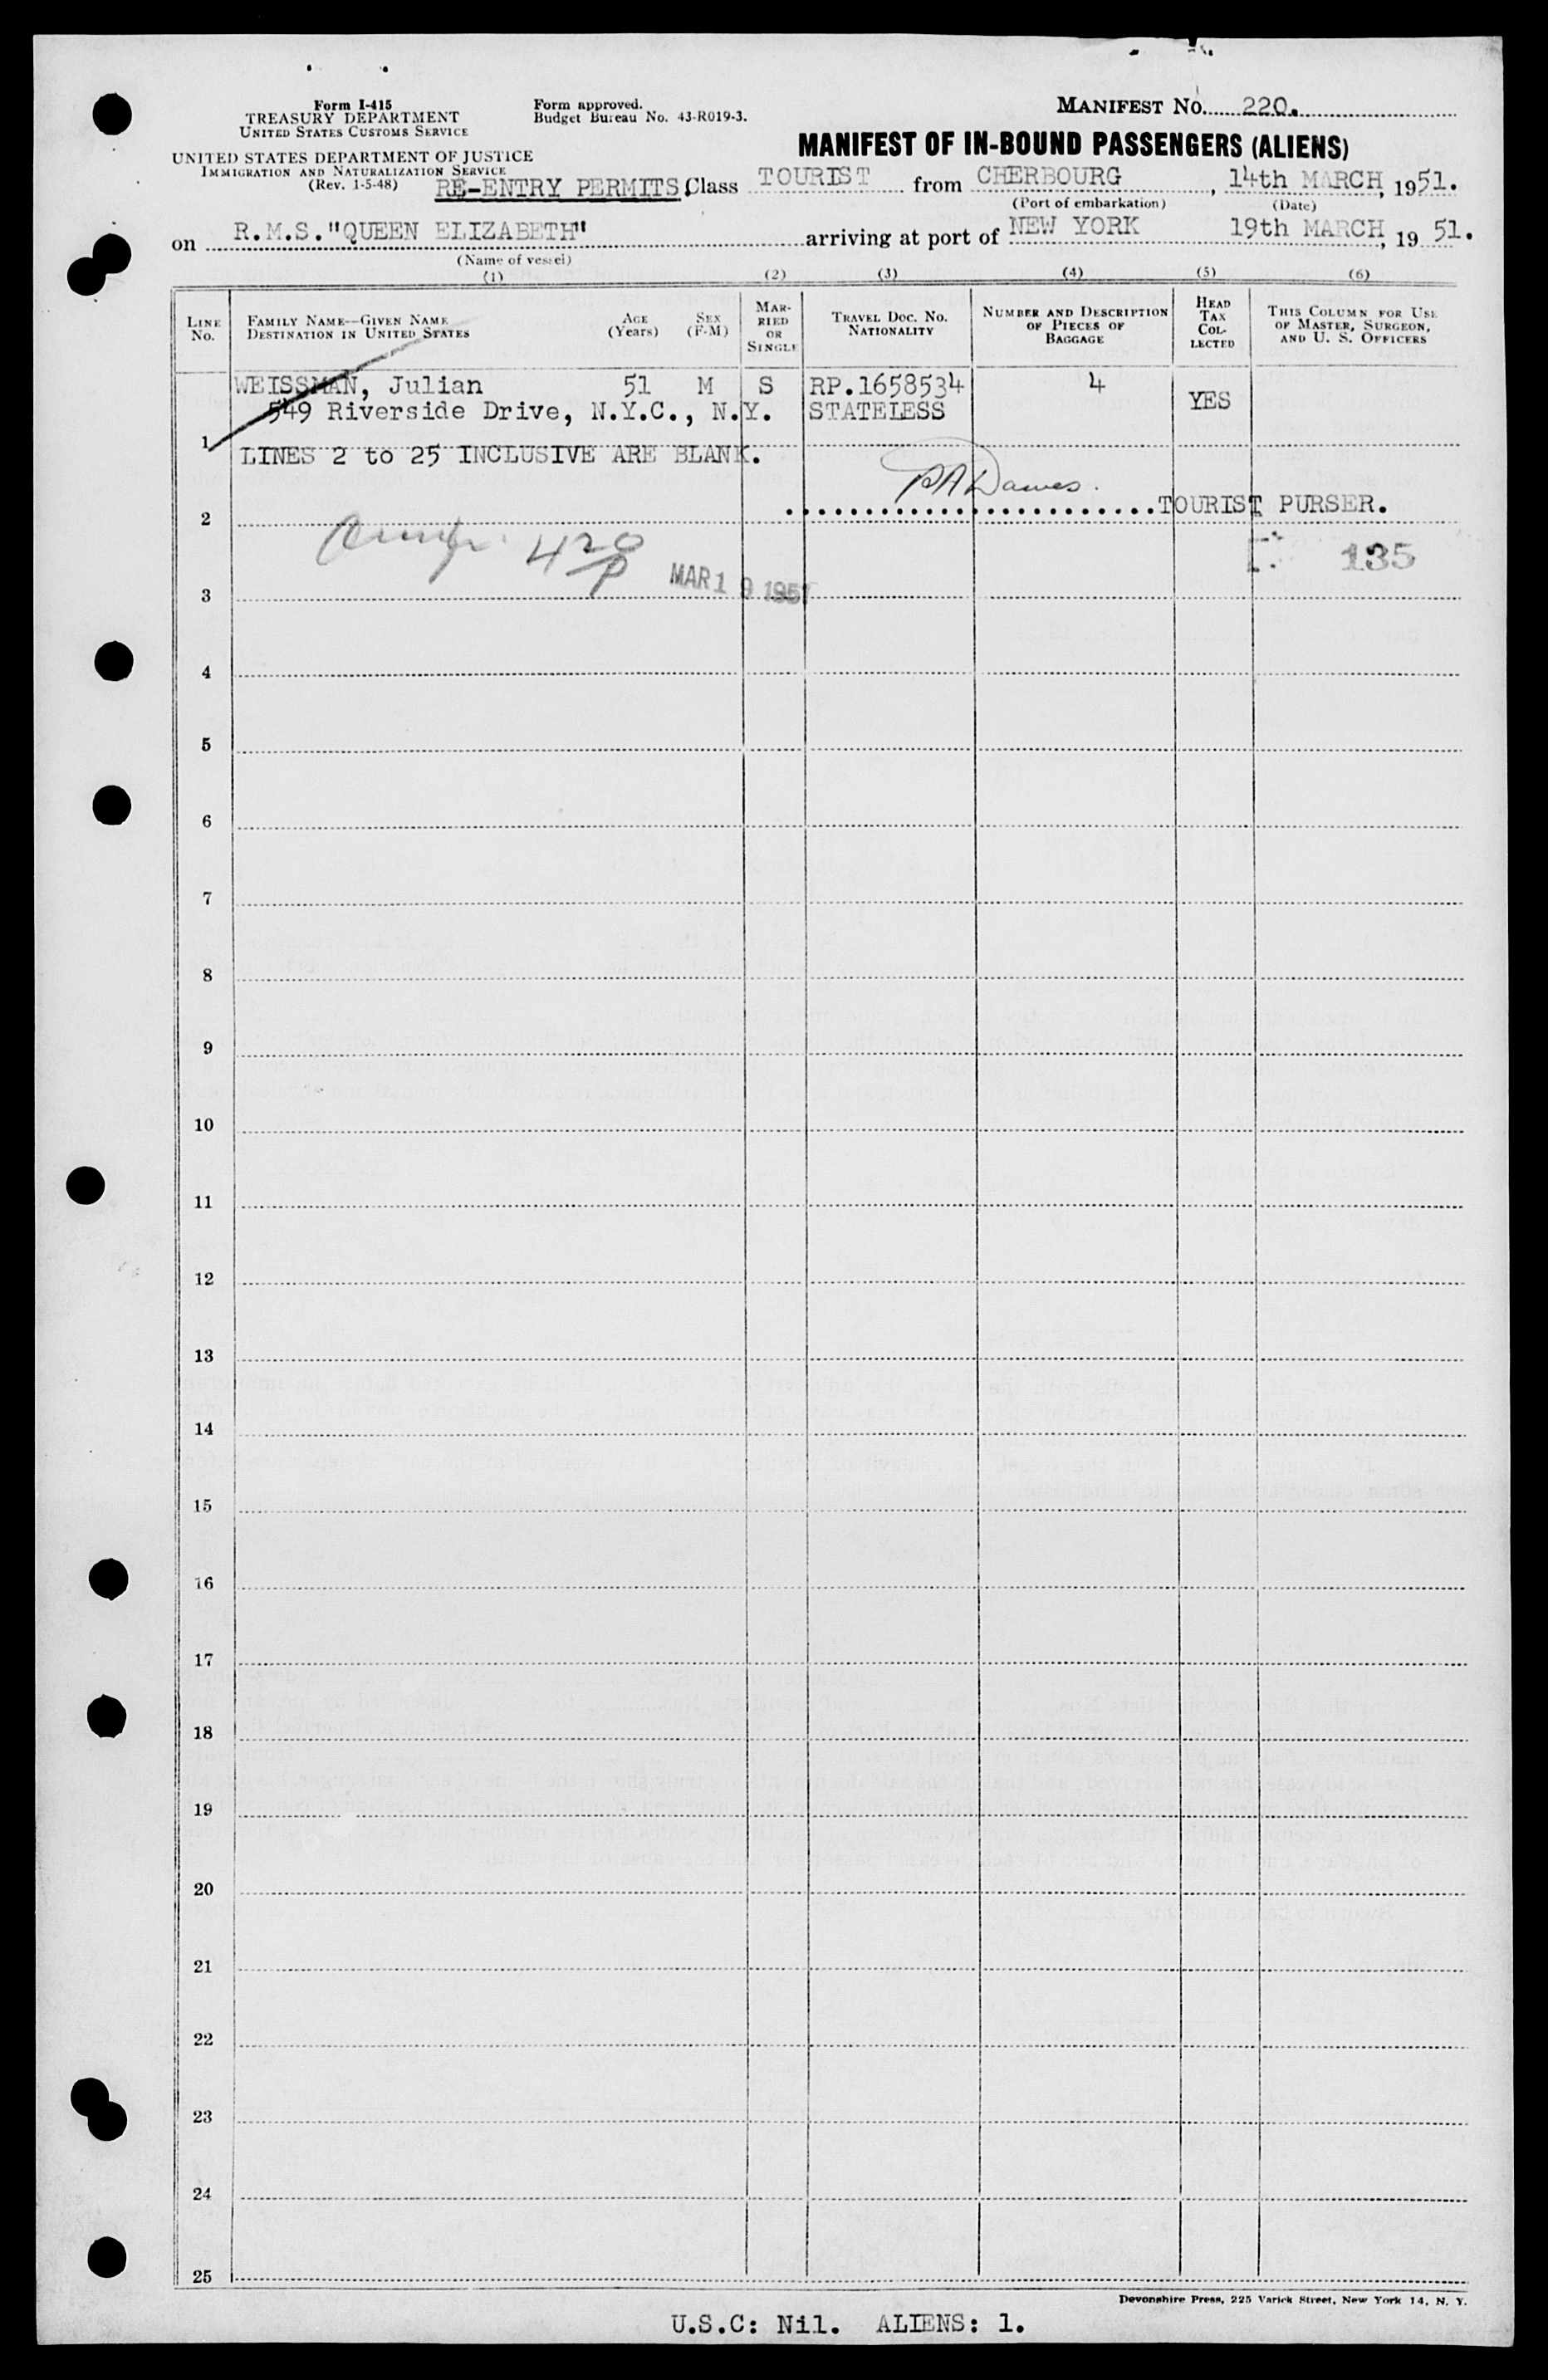 Form I-415
TREASURY DEPARTMENT
UNITED STATES CUSTOMS SERVICE
UNITED STATES DEPARTMENT OF JUSTICE
IMMIGRATION AND NATURALIZATION SERVICE
(Rev. 1-5-48)
Form approved.
Budget Bureau No. 43-R019-3.
MANIFEST NO. 220.
MANIFEST OF IN-BOUND PASSENGERS (ALIENS)
RE-ENTRY PERMITS Class TOURIST from CHERBOURG, 14th MARCH, 1951.
(Port of embarkation) (Date)
on R.M.S."QUEEN ELIZABETH" arriving at port of NEW YORK 19th MARCH, 19 51.
(Name of vessel)
(1) (2) (3) (4) (5) (6)
LINE NO.
FAMILY NAME—GIVEN NAME
DESTINATION IN UNITED STATES
AGE (Years)
SEX (F-M)
MARRIED OR SINGLE
TRAVEL DOC. NO.
NATIONALITY
NUMBER AND DESCRIPTION OF PIECES OF BAGGAGE
HEAD TAX COLLECTED
THIS COLUMN FOR USE OF MASTER, SURGEON, AND U. S. OFFICERS
WEISSMAN, Julian 51 M S RP.1658534 4
549 Riverside Drive, N.Y.C., N.Y. STATELESS YES
1
LINES 2 to 25 INCLUSIVE ARE BLANK.
Dawes.
TOURIST PURSER.
2
420
135
MAR 19 1951
3
4
5
6
7
8
9
10
11
12
13
14
15
16
17
18
19
20
21
22
23
24
25
Devonshire Press, 225 Varick Street, New York 14, N. Y.
U.S.C: Nil. ALIENS: 1.